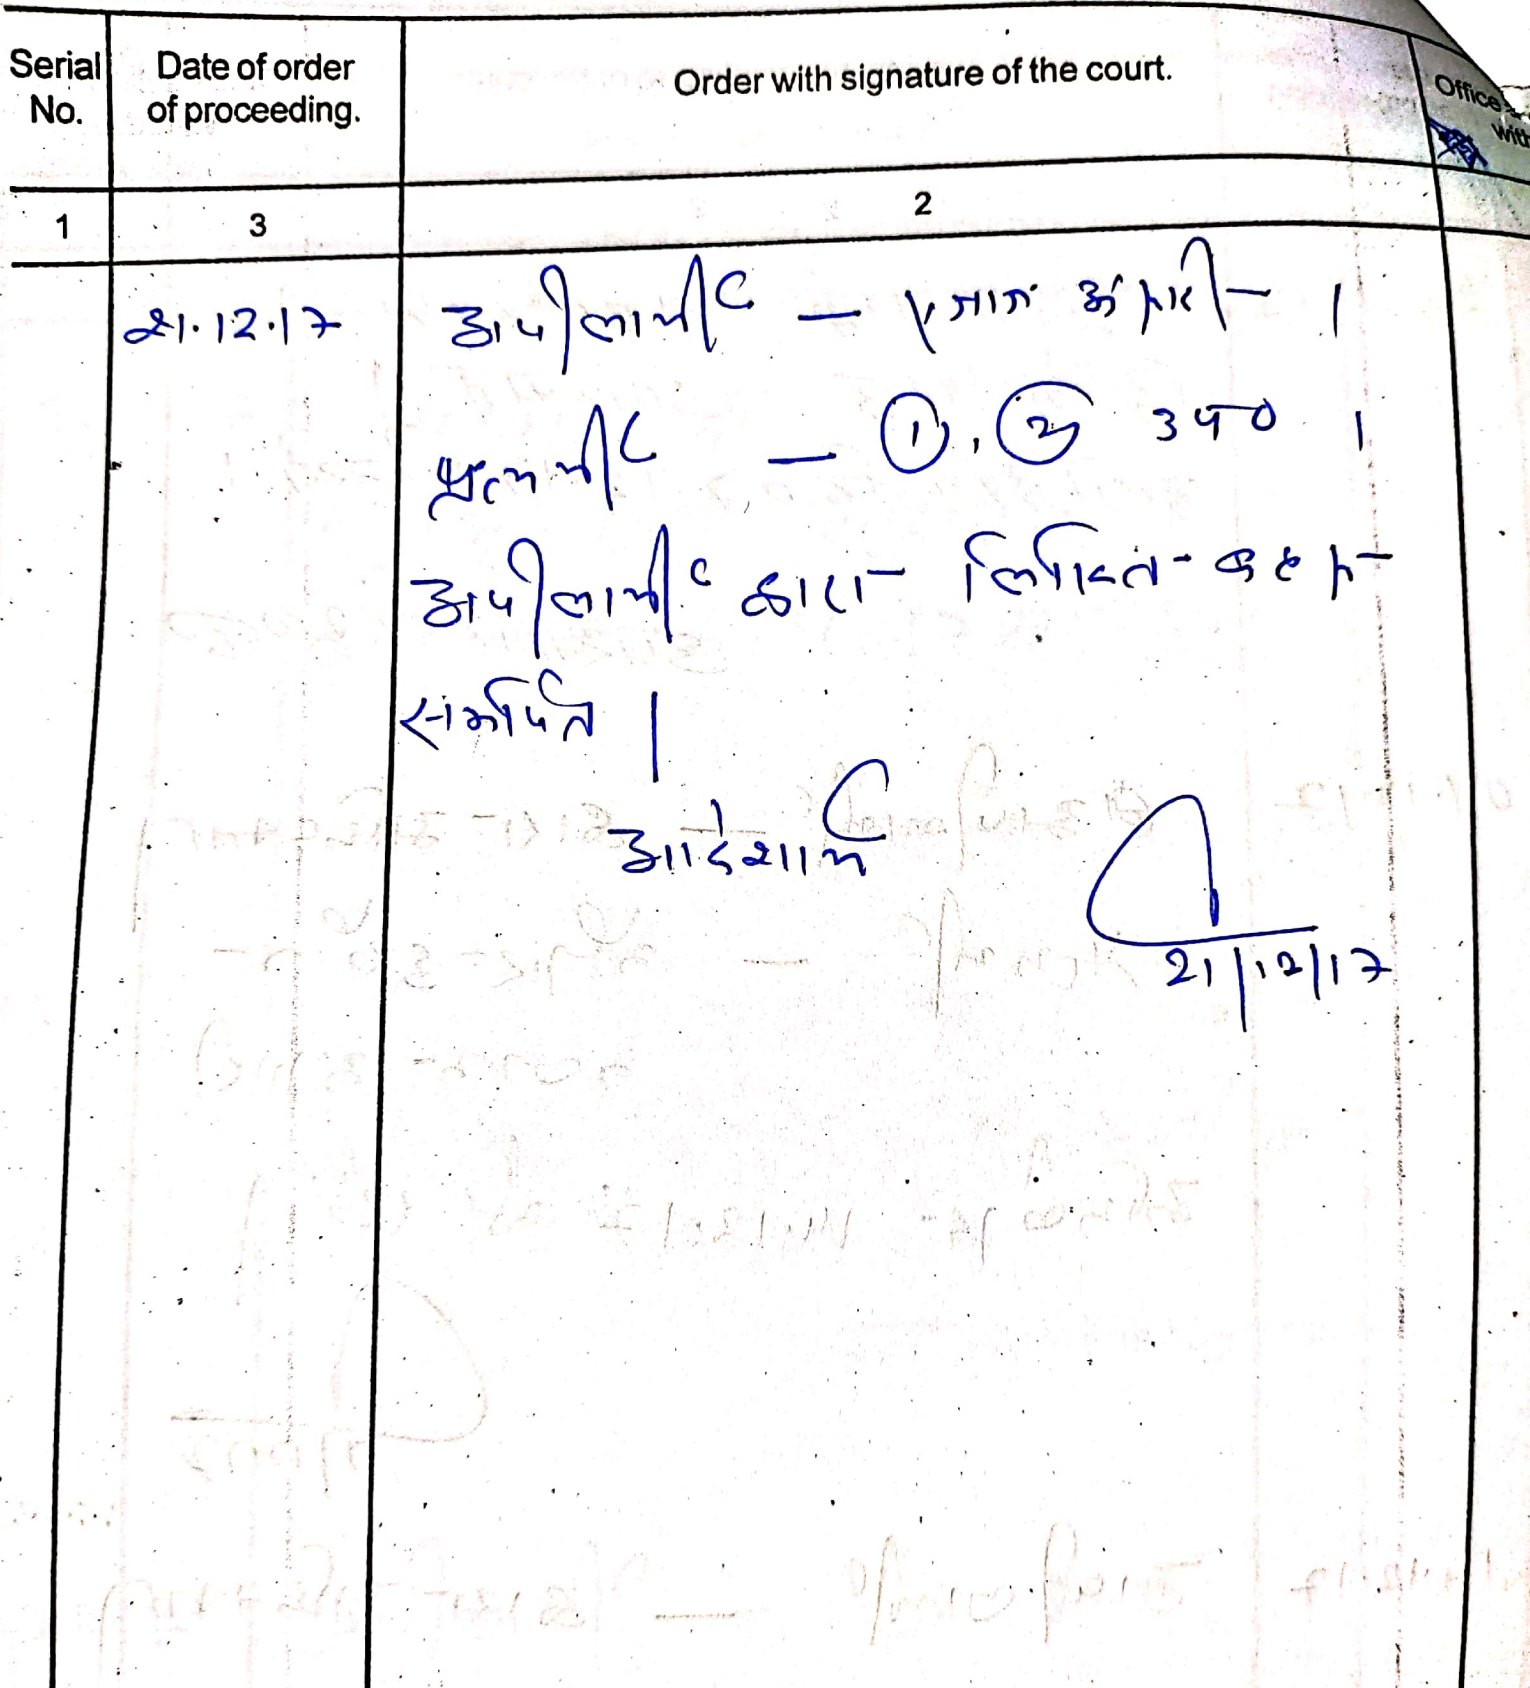 Serial No.
Date of order of proceeding.
Order with signature of the court.
Office
with
1 3 2
21.12.17 अपीलार्थी — एजाज अंसारी ।
प्रत्यर्थी — ①, ② उप० ।
अपीलार्थी द्वारा लिखित बहस
समर्पित ।
आदेशार्थ
21/12/17